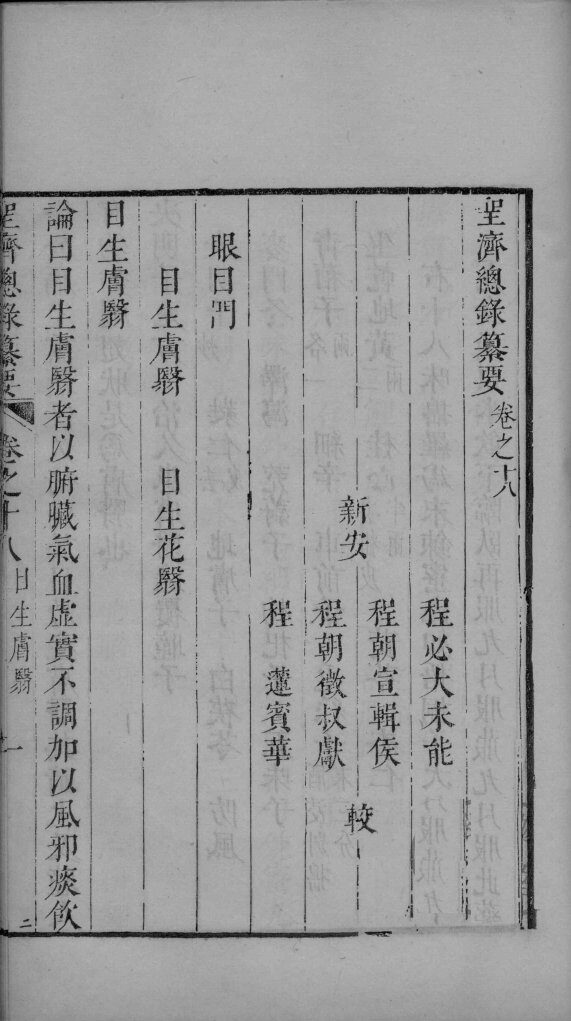 聖濟總錄纂要 卷之十八
程必大未能
程朝宣輯侯
新安 較
程朝徵叔獻
程 蘧賓華
眼目門
目生膚翳 目生花翳
目生膚翳
論曰目生膚翳者以腑臟氣血虛實不調加以風邪痰飲
聖濟總錄纂要 卷之十八 目生膚翳 一 二